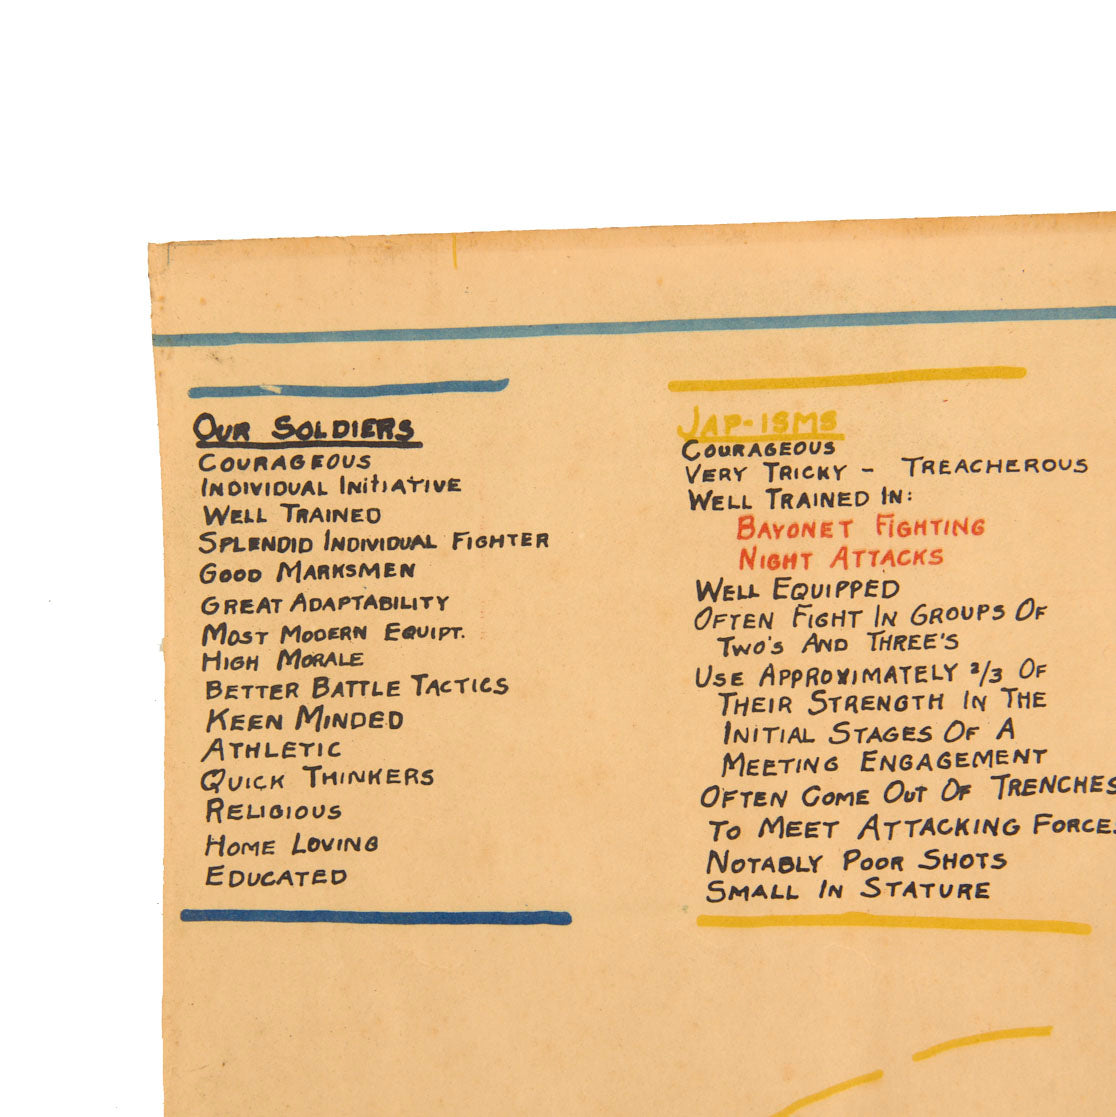 OUR SOLDIERS
COURAGEOUS
INDIVIDUAL INITIATIVE
WELL TRAINED
SPLENDID INDIVIDUAL FIGHTER
GOOD MARKSMEN
GREAT ADAPTABILITY
MOST MODERN EQUIPT.
HIGH MORALE
BETTER BATTLE TACTICS
KEEN MINDED
ATHLETIC
QUICK THINKERS
RELIGIOUS
HOME LOVING
EDUCATED
JAP-ISMS
COURAGEOUS
VERY TRICKY - TREACHEROUS
WELL TRAINED IN:
BAYONET FIGHTING
NIGHT ATTACKS
WELL EQUIPPED
OFTEN FIGHT IN GROUPS OF
TWO'S AND THREE'S
USE APPROXIMATELY 2/3 OF
THEIR STRENGTH IN THE
INITIAL STAGES OF A
MEETING ENGAGEMENT
OFTEN COME OUT OF TRENCHES
TO MEET ATTACKING FORCE.
NOTABLY POOR SHOTS
SMALL IN STATURE